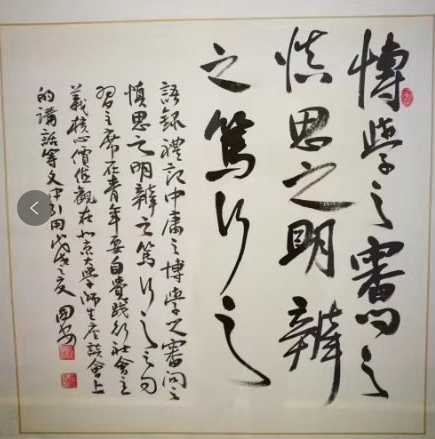 博學之審問之
慎思之明辨
之篤行之
語錄禮記中庸之博學之審問之
慎思之明辨之篤行之之句
習主席在青年要自覺踐行社會主
義核心價值觀在北京大學師生座談會上
的講話等文中引用戊戌之夏